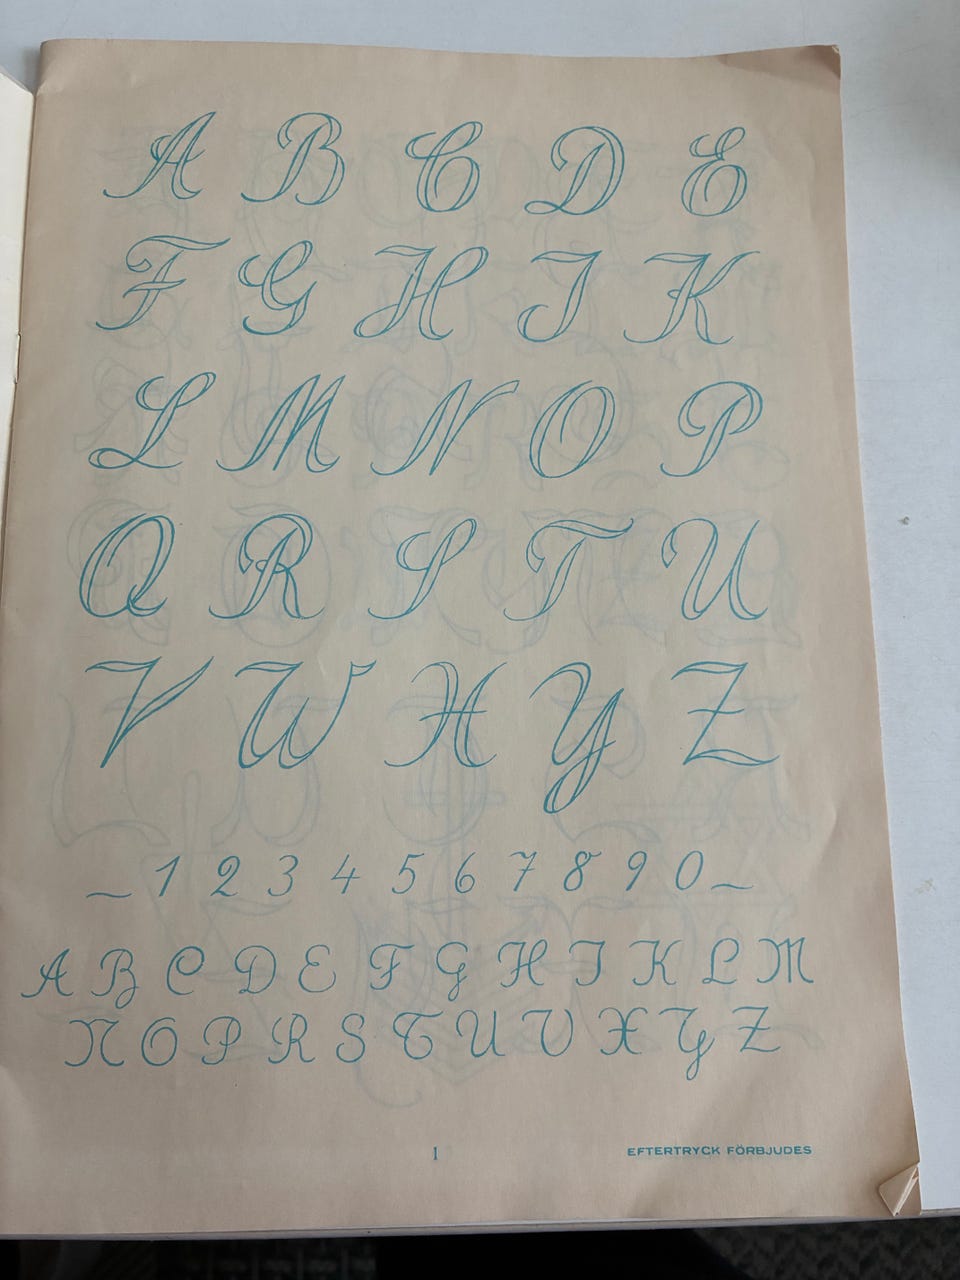 A B C D E
F G H I K
L M N O P
Q R S T U
V W X Y Z
1 2 3 4 5 6 7 8 9 0
A B C D E F G H I K L M
N O P R S T U V X Y Z
1
EFTERTRYCK FÖRBJUDES